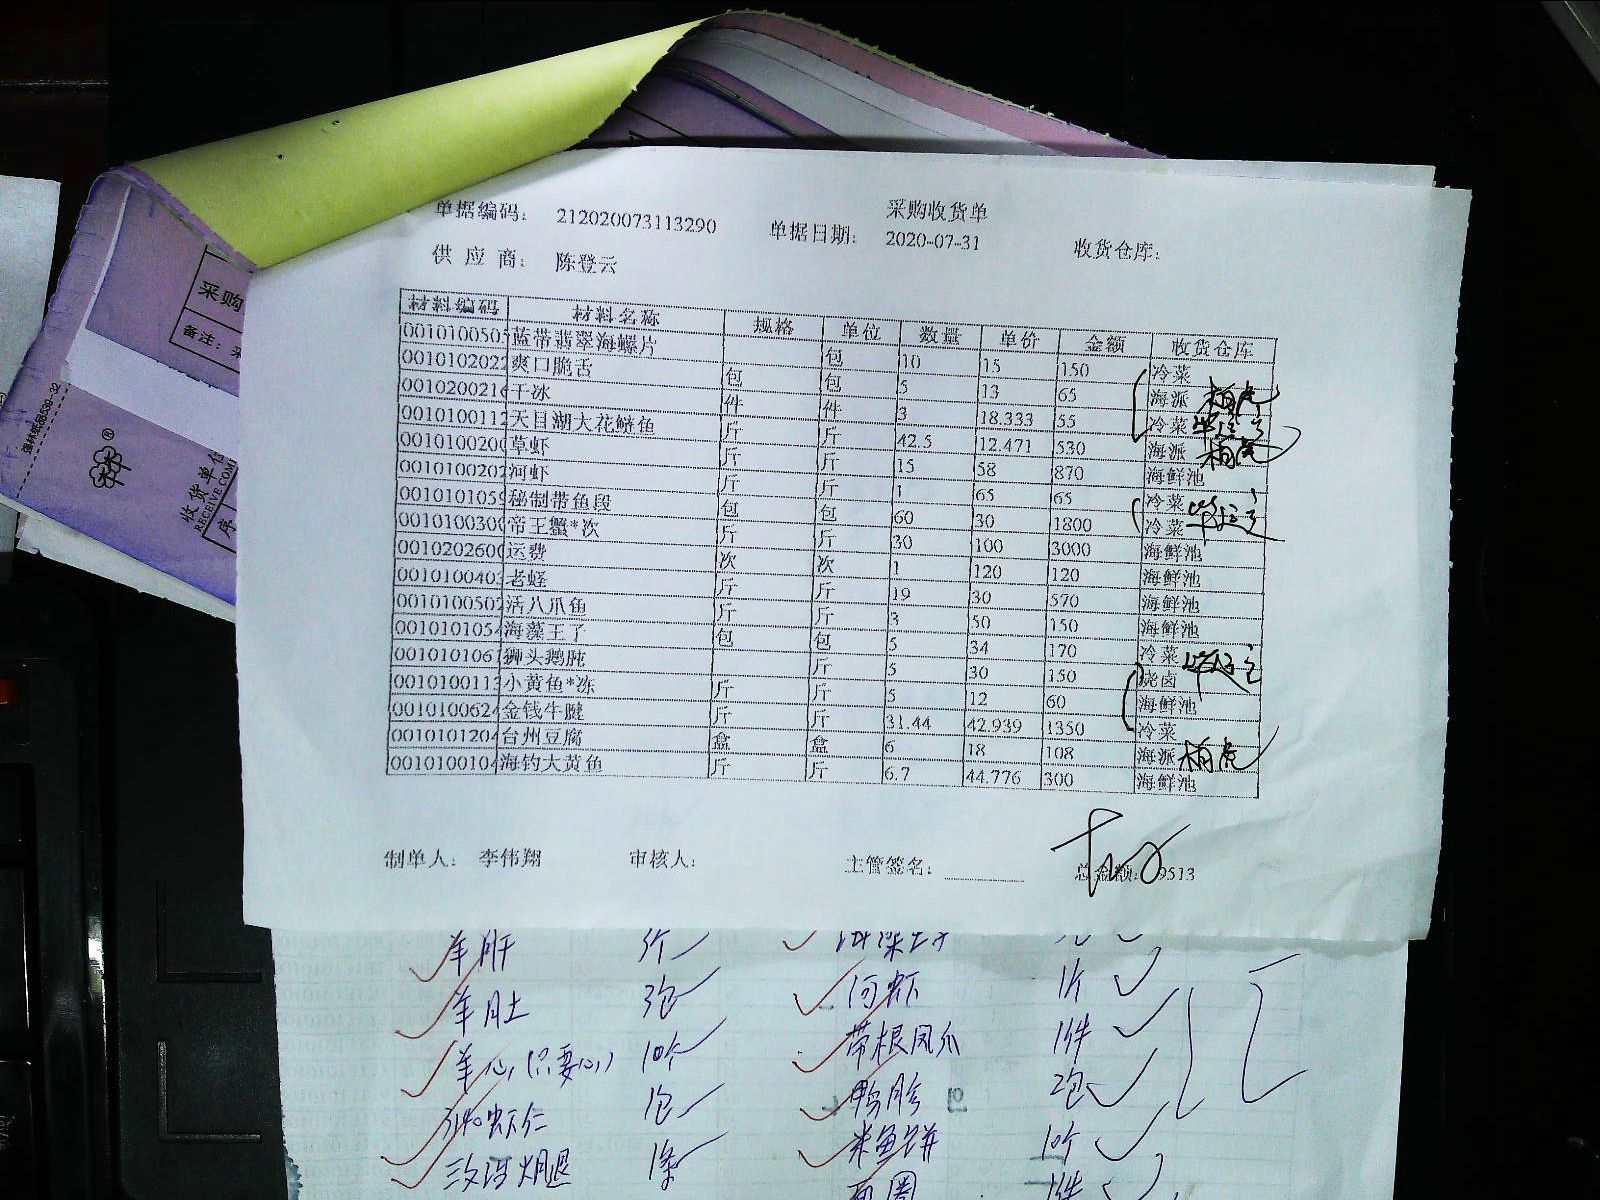 采购收货单
单据编码: 212020073113290 单据日期: 2020-07-31 收货仓库:
供 应 商: 陈登云
材料编码 材料名称 规格 单位 数量 单价 金额 收货仓库
0010100505 蓝带翡翠海螺片 包 10 15 150 冷菜
0010102022 爽口脆舌 包 包 5 13 65 海派
0010200216 干冰 件 件 3 18.333 55 冷菜
0010100112 天目湖大花鲢鱼 斤 斤 42.5 12.471 530 海派
0010100200 草虾 斤 斤 15 58 870 海鲜池
0010100202 河虾 斤 斤 1 65 65 冷菜
0010101059 秘制带鱼段 包 包 60 30 1800 冷菜
0010100300 帝王蟹*次 斤 斤 30 100 3000 海鲜池
0010202600 运费 次 次 1 120 120 海鲜池
0010100403 老蛏 斤 斤 19 30 570 海鲜池
0010100502 活八爪鱼 斤 斤 3 50 150 海鲜池
0010101054 海藻王了 包 包 5 34 170 冷菜
0010101061 狮头鹅肫 斤 5 30 150 烧卤
0010100113 小黄鱼*冻 斤 斤 5 12 60 海鲜池
0010100624 金钱牛腱 斤 斤 31.44 42.939 1350 冷菜
0010101204 台州豆腐 盒 盒 6 18 108 海派
0010100104 海钓大黄鱼 斤 斤 6.7 44.776 300 海鲜池
制单人: 李伟翔 审核人: 主管签名: 总金额: 9513
采购
备注:
收货单位
RECEIVE COM
序
羊肝
羊肚 3包 河虾 1斤
羊心(只要心) 10个 带根凤爪 1件
虾仁 1包 鸭胗 2包
火腿 1条 米鱼饼 10个
面圈 1件